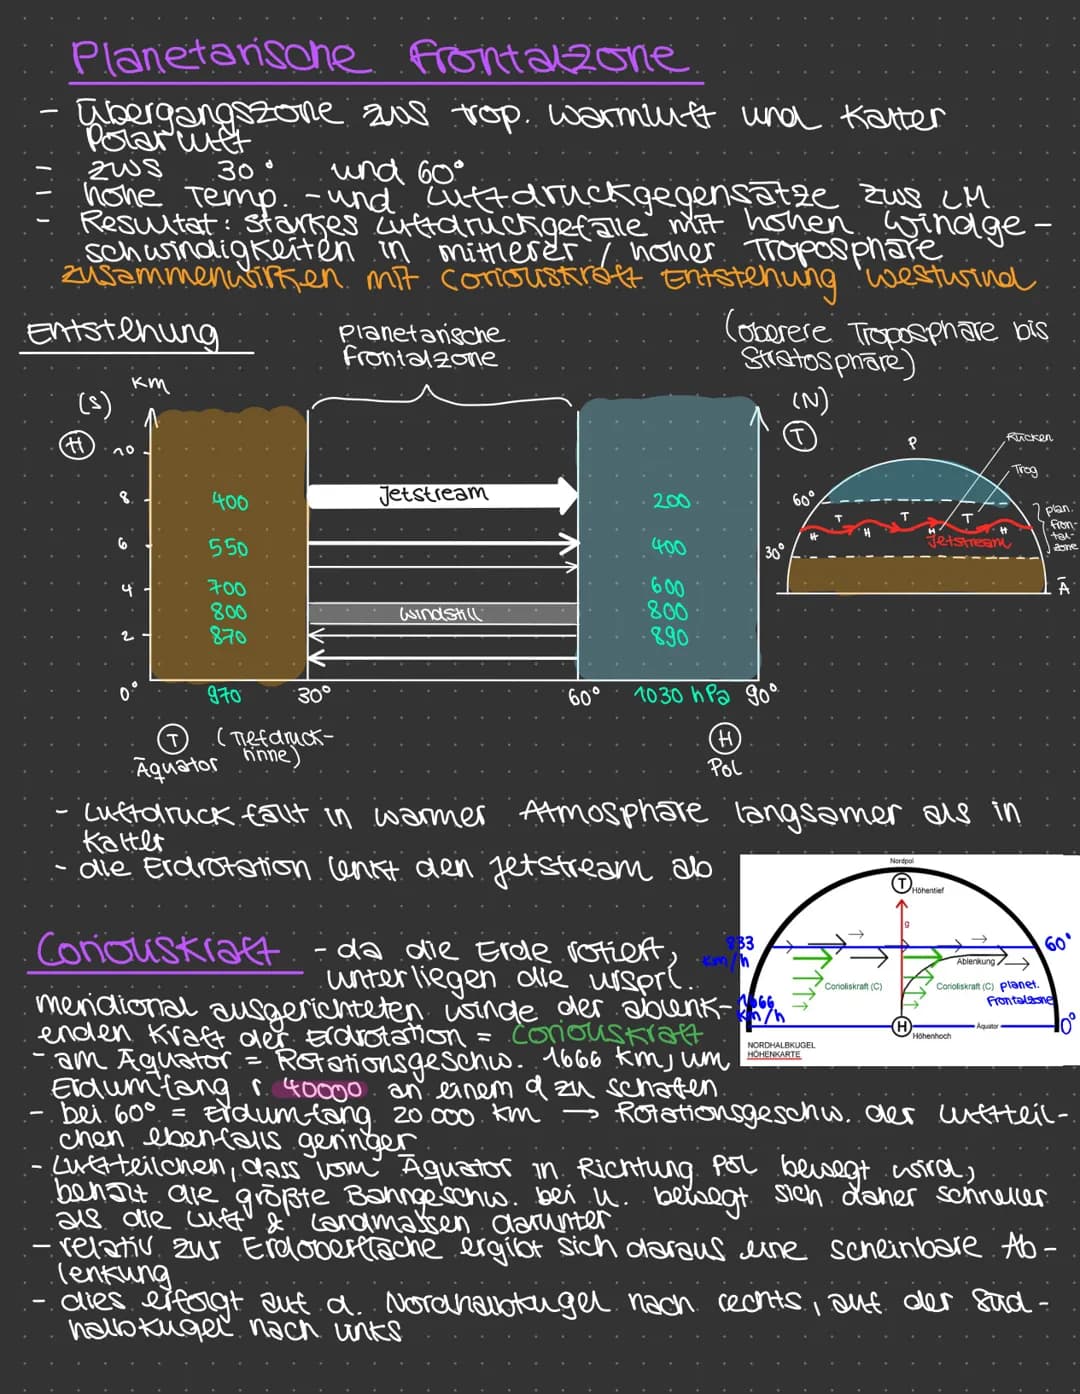 Planetarische Frontalzone
- Übergangszone zws trop. Warmluft und kalter
Polarluft
- zws 30° und 60°
- hohe Temp.-und Luftdruckgegensätze zws LM
- Resultat: Starkes Luftdruckgefälle mit hohen Windge-
schwindigkeiten in mittlerer / hoher Troposphäre
Zusammenwirken mit Corioliskraft Entstehung Westwind
(oberere Troposphäre bis
Stratosphäre)
Entstehung
Planetarische
Frontalzone
km
(S)
(N)
H
T
10
8
6
4
2
0°
400
550
700
800
870
970
Jetstream
windstill
200
400
600
800
890
1030 hPa
30°
60°
90°
T (Tiefdruck-
rinne)
Äquator
H
Pol
P
Rücken
Trog
60°
30°
T
T
T
H
H
H
H
Jetstream
plan.
Fron-
tal-
zone
Ä
- Luftdruck fällt in warmer Atmosphäre langsamer als in
kalter
- die Erdrotation lenkt den Jetstream ab
Nordpol
T
Höhentief
g
833
km/h
60°
Ablenkung
Corioliskraft (C)
Corioliskraft (C)
planet.
Frontalzone
1666
km/h
H
Höhenhoch
Äquator
0°
NORDHALBKUGEL
HÖHENKARTE
Corioliskraft
- da die Erde rotiert,
unterliegen die urspr.
meridional ausgerichteten Winde der ablenk-
enden Kraft der Erdrotation = Corioliskraft
- am Äquator = Rotationsgeschw. 1666 km, um
Erdumfang v. 40000 an einem d zu schaffen
- bei 60° = Erdumfang 20.000 km → Rotationsgeschw. der Luftteil-
chen ebenfalls geringer
- Luftteilchen, dass vom Äquator in Richtung Pol bewegt wird,
behält die größte Bahngeschw. bei u. bewegt sich daher schneller
als die Luft & Landmassen darunter
- relativ zur Erdoberfläche ergibt sich daraus eine scheinbare Ab-
lenkung
- dies erfolgt auf d. Nordhalbkugel nach rechts, auf der Süd-
halbkugel nach links